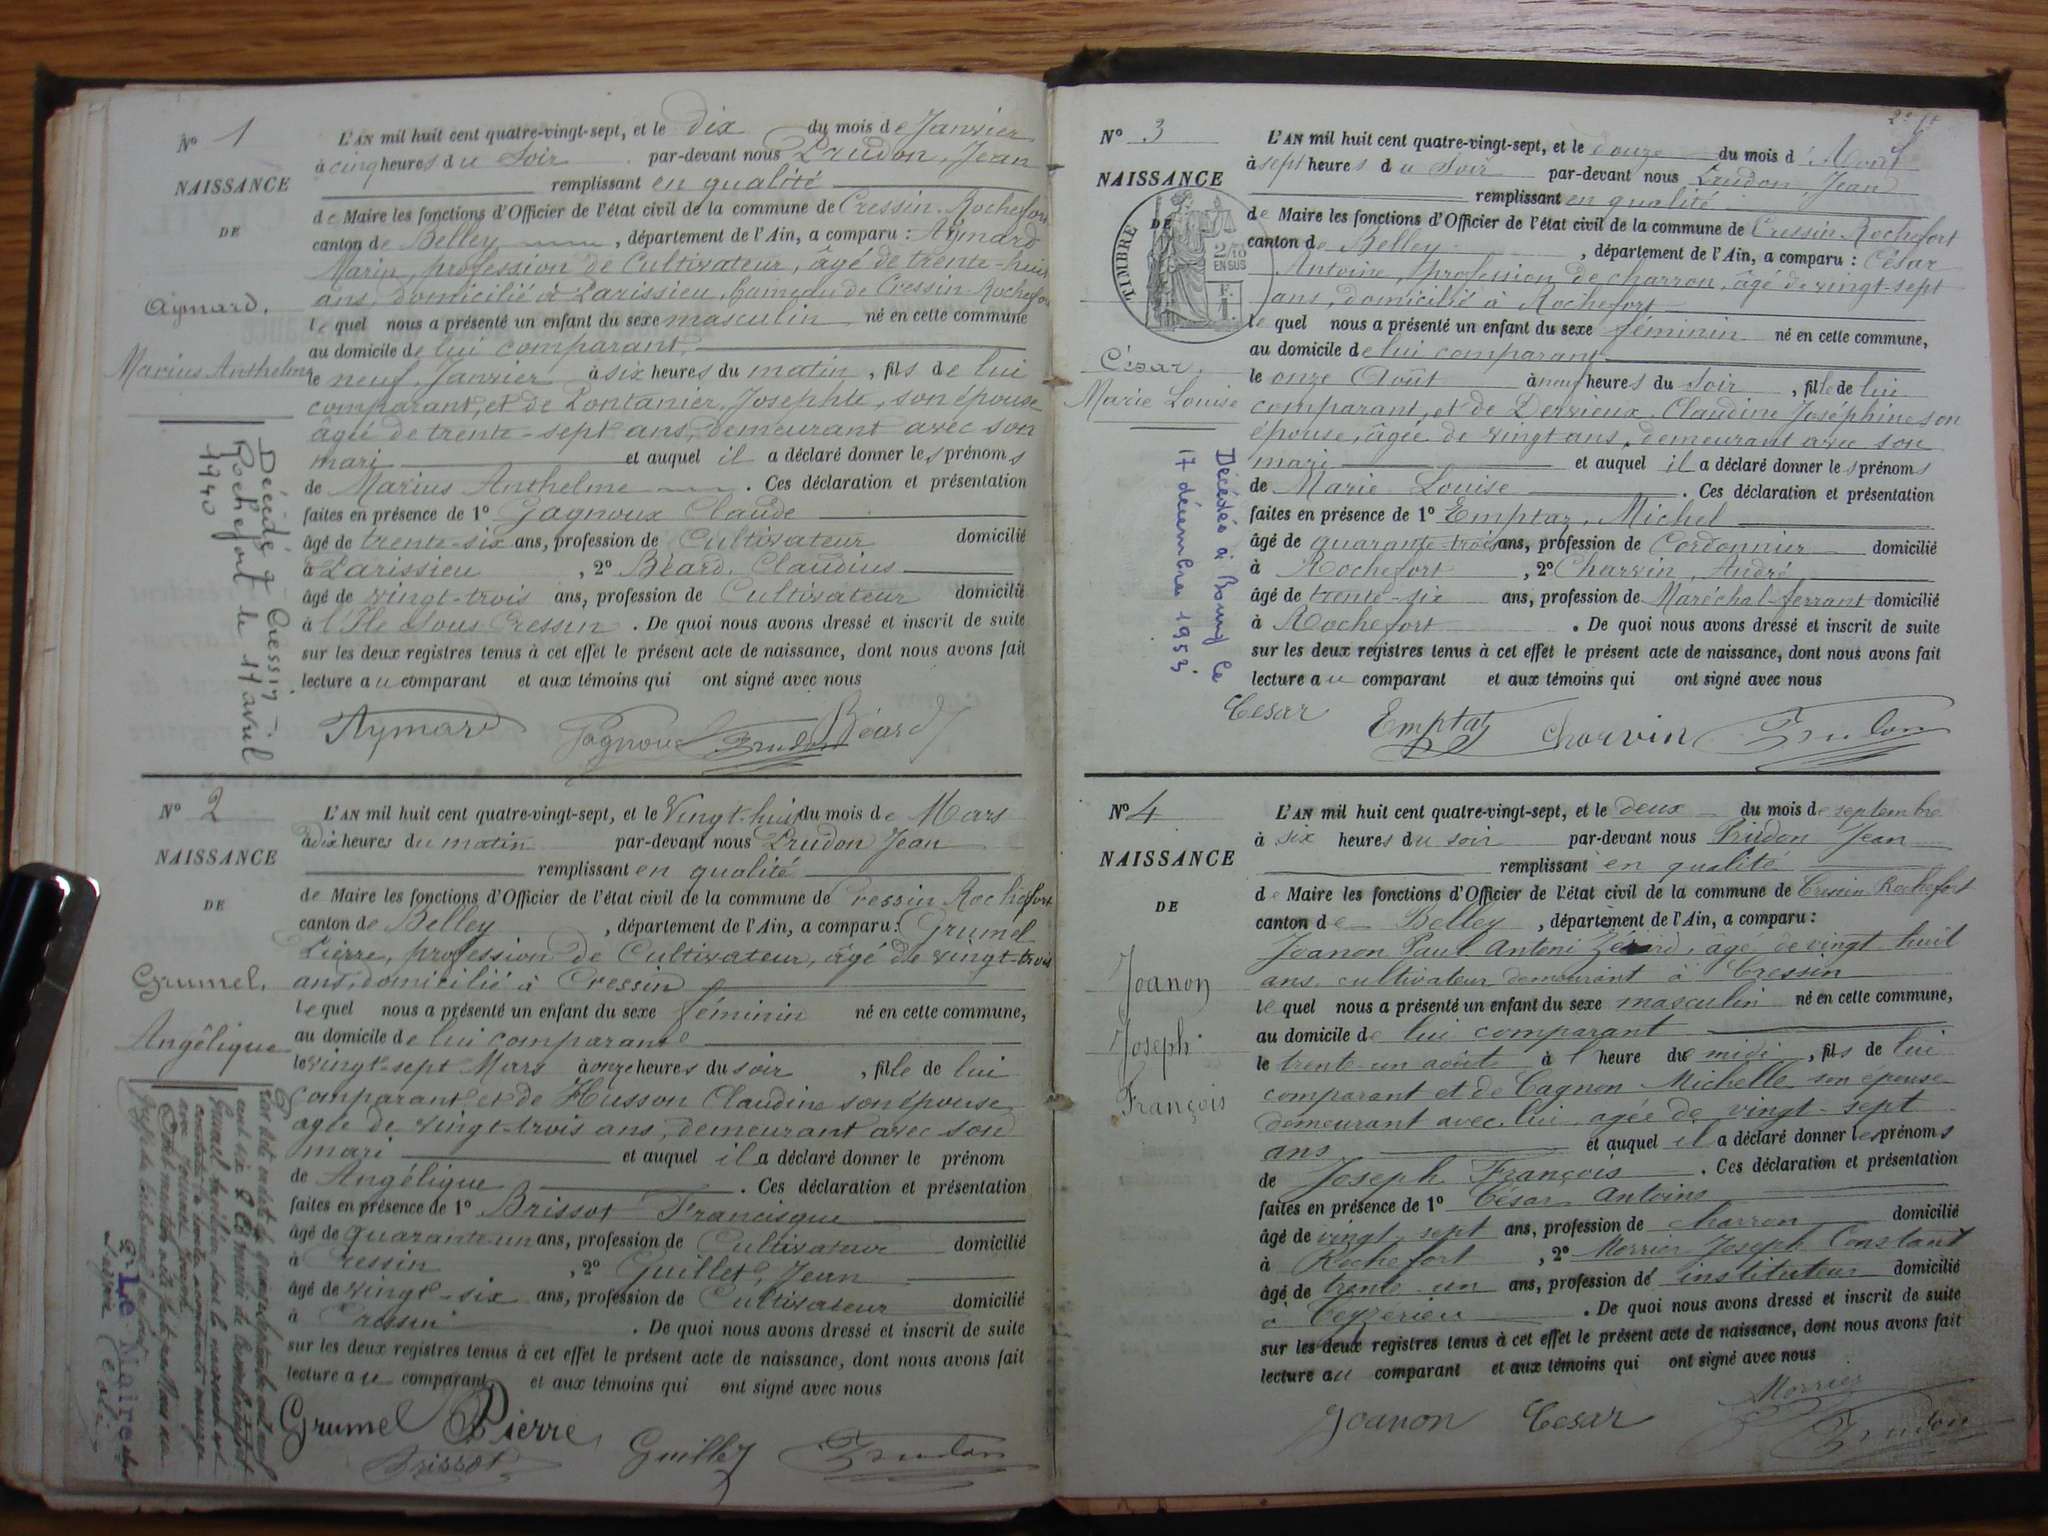 N° 1
NAISSANCE
DE
Aymard,
Marius Anthelme
Décédé à Cressin-
Rochefort le 17 avril
1940
L'AN mil huit cent quatre-vingt-sept, et le dix du mois de Janvier
à cinq heures du Soir par-devant nous Prudon, Jean
remplissant en qualité
de Maire les fonctions d'Officier de l'état civil de la commune de Cressin-Rochefort
canton de Belley, département de l'Ain, a comparu : Aymard
Marin, profession de Cultivateur, âgé de trente-huit
ans, domicilié à Parissieu, hameau de Cressin Rochefort
lequel nous a présenté un enfant du sexe masculin né en cette commune
au domicile de lui comparant,
le neuf Janvier à six heures du matin, fils de lui
comparant, et de Pontanier, Josephte, son épouse
âgée de trente-sept ans, demeurant avec son
mari et auquel il a déclaré donner les prénoms
de Marius Anthelme. Ces déclaration et présentation
faites en présence de 1° Gagnoux Claude
âgé de trente-six ans, profession de Cultivateur domicilié
à Parissieu, 2° Béard, Claudius
âgé de vingt-trois ans, profession de Cultivateur domicilié
à l'Ile Sous Cressin. De quoi nous avons dressé et inscrit de suite
sur les deux registres tenus à cet effet le présent acte de naissance, dont nous avons fait
lecture au comparant et aux témoins qui ont signé avec nous
Aymard Gagnoux Prudon Béard
N° 2
NAISSANCE
DE
Grumel,
Angélique
Le Maire
L'AN mil huit cent quatre-vingt-sept, et le Vingt-huit du mois de Mars
à dix heures du matin par-devant nous Prudon Jean
remplissant en qualité
de Maire les fonctions d'Officier de l'état civil de la commune de Cressin Rochefort
canton de Belley, département de l'Ain, a comparu : Grumel
Pierre, profession de Cultivateur, âgé de vingt-trois
ans, domicilié à Cressin
lequel nous a présenté un enfant du sexe féminin né en cette commune,
au domicile de lui comparant
le vingt-sept Mars à onze heures du soir, fille de lui
comparant et de Husson Claudine son épouse
agée de vingt-trois ans, demeurant avec son
mari et auquel il a déclaré donner le prénom
de Angélique. Ces déclaration et présentation
faites en présence de 1° Brissot Francisque
âgé de quarante un ans, profession de Cultivateur domicilié
à Cressin, 2° Guillet, Jean
âgé de vingt-six ans, profession de Cultivateur domicilié
à Cressin. De quoi nous avons dressé et inscrit de suite
sur les deux registres tenus à cet effet le présent acte de naissance, dont nous avons fait
lecture au comparant et aux témoins qui ont signé avec nous
Grumel Pierre
Brissot Guillet Prudon
N° 3
NAISSANCE
DE
TIMBRE
2/10
EN SUS
César,
Marie Louise
Décédée à Bourg le
17 décembre 1953
L'AN mil huit cent quatre-vingt-sept, et le douze du mois d'Aout
à sept heures du Soir par-devant nous Prudon, Jean
remplissant en qualité
de Maire les fonctions d'Officier de l'état civil de la commune de Cressin-Rochefort
canton de Belley, département de l'Ain, a comparu : César
Antoine, profession de charron, âgé de vingt-sept
ans, domicilié à Rochefort
lequel nous a présenté un enfant du sexe féminin né en cette commune,
au domicile de lui comparant
le onze Août à neuf heures du Soir, fille de lui
comparant, et de Dervieux, Claudine Joséphine son
épouse, âgée de vingt ans, demeurant avec son
mari et auquel il a déclaré donner les prénoms
de Marie Louise. Ces déclaration et présentation
faites en présence de 1° Emptaz, Michel
âgé de quarante-trois ans, profession de Cordonnier domicilié
à Rochefort, 2° Charvin, André
âgé de trente-six ans, profession de Maréchal-ferrant domicilié
à Rochefort. De quoi nous avons dressé et inscrit de suite
sur les deux registres tenus à cet effet le présent acte de naissance, dont nous avons fait
lecture au comparant et aux témoins qui ont signé avec nous
Cesar Emptaz Charvin Prudon
N° 4
NAISSANCE
DE
Joanon
Joseph
François
L'AN mil huit cent quatre-vingt-sept, et le deux du mois de septembre
à six heures du soir par-devant nous Prudon Jean
remplissant en qualité
de Maire les fonctions d'Officier de l'état civil de la commune de Cressin Rochefort
canton de Belley, département de l'Ain, a comparu :
Joanon Paul Antoni, agé de vingt huit
ans cultivateur demeurant à Cressin
lequel nous a présenté un enfant du sexe masculin né en cette commune,
au domicile de lui comparant
le trente-un août à l heure de midi, fils de lui
comparant et de Cagnon Michelle son épouse
demeurant avec lui, agée de vingt-sept
ans et auquel il a déclaré donner les prénoms
de Joseph François. Ces déclaration et présentation
faites en présence de 1° César Antoine
âgé de vingt sept ans, profession de charron domicilié
à Rochefort, 2° Morrier Joseph Constant
âgé de trente un ans, profession de instituteur domicilié
à Ceyzerieu. De quoi nous avons dressé et inscrit de suite
sur les deux registres tenus à cet effet le présent acte de naissance, dont nous avons fait
lecture au comparant et aux témoins qui ont signé avec nous
Joanon Cesar Morrier Prudon